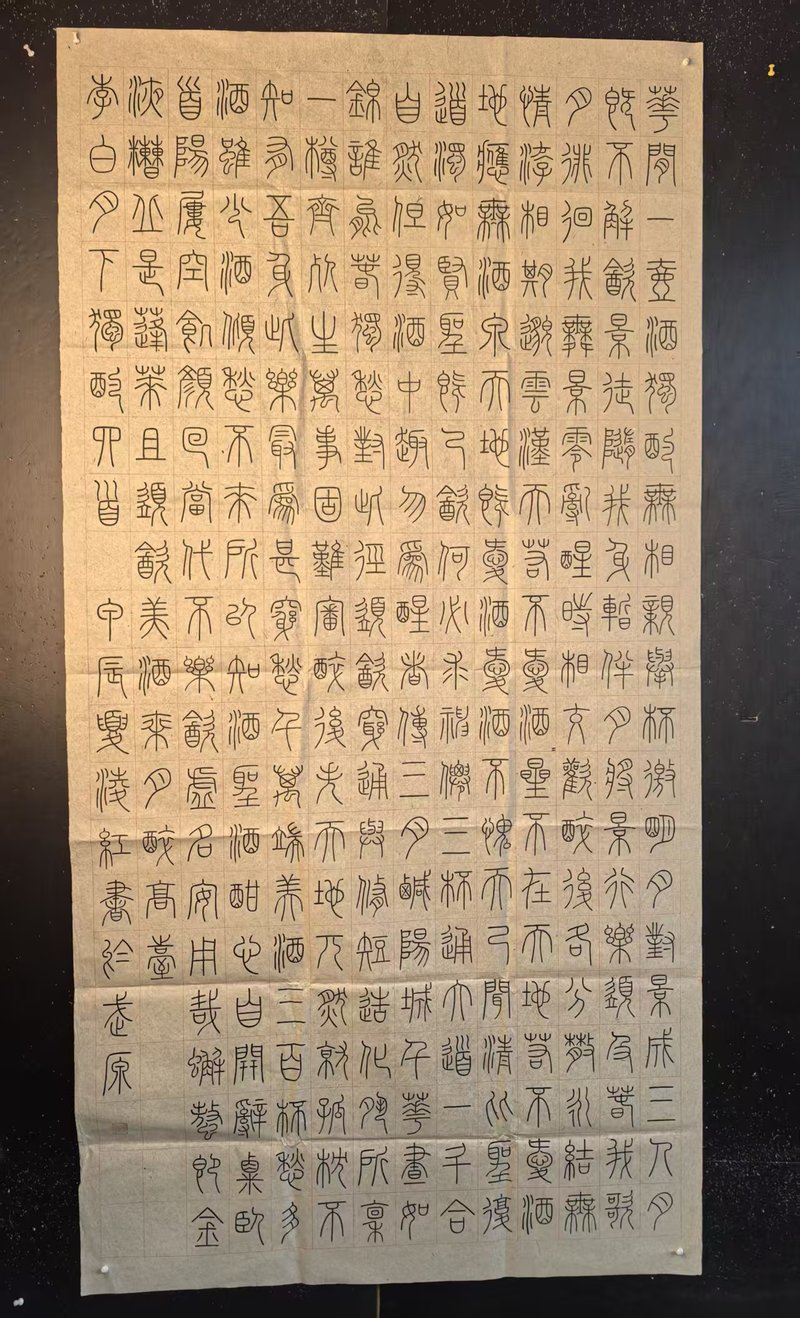 華閒一壺酒獨酌無相親舉杯邀明月對景成三人月
既不解飲景徒隨我身暫伴月將景行樂須及春我歌
月徘徊我舞景零亂醒時相交歡醉後各分散永結無
情游相期邈雲漢天若不愛酒星不在天地若不愛酒
地應無酒泉天地既愛酒愛酒不愧天已聞清比聖復
道濁如賢聖既已飲何必求神僊三杯通大道一斗合
自然但得酒中趣勿為醒者傳三月鹹陽城千華晝如
錦誰能春獨愁對此徑須飲窮通與修短造化夙所稟
一樽齊死生萬事固難審醉後失天地兀然就孤枕不
知有吾身此樂最為甚窮愁千萬端美酒三百杯愁多
酒雖少酒傾愁不來所以知酒聖酒酣心自開辭粟臥
首陽屢空飢顏回當代不樂飲虛名安用哉蟹螯即金
液糟丘是蓬萊且須飲美酒乘月醉高臺
李白月下獨酌四首 甲辰夏淩紅書於武原